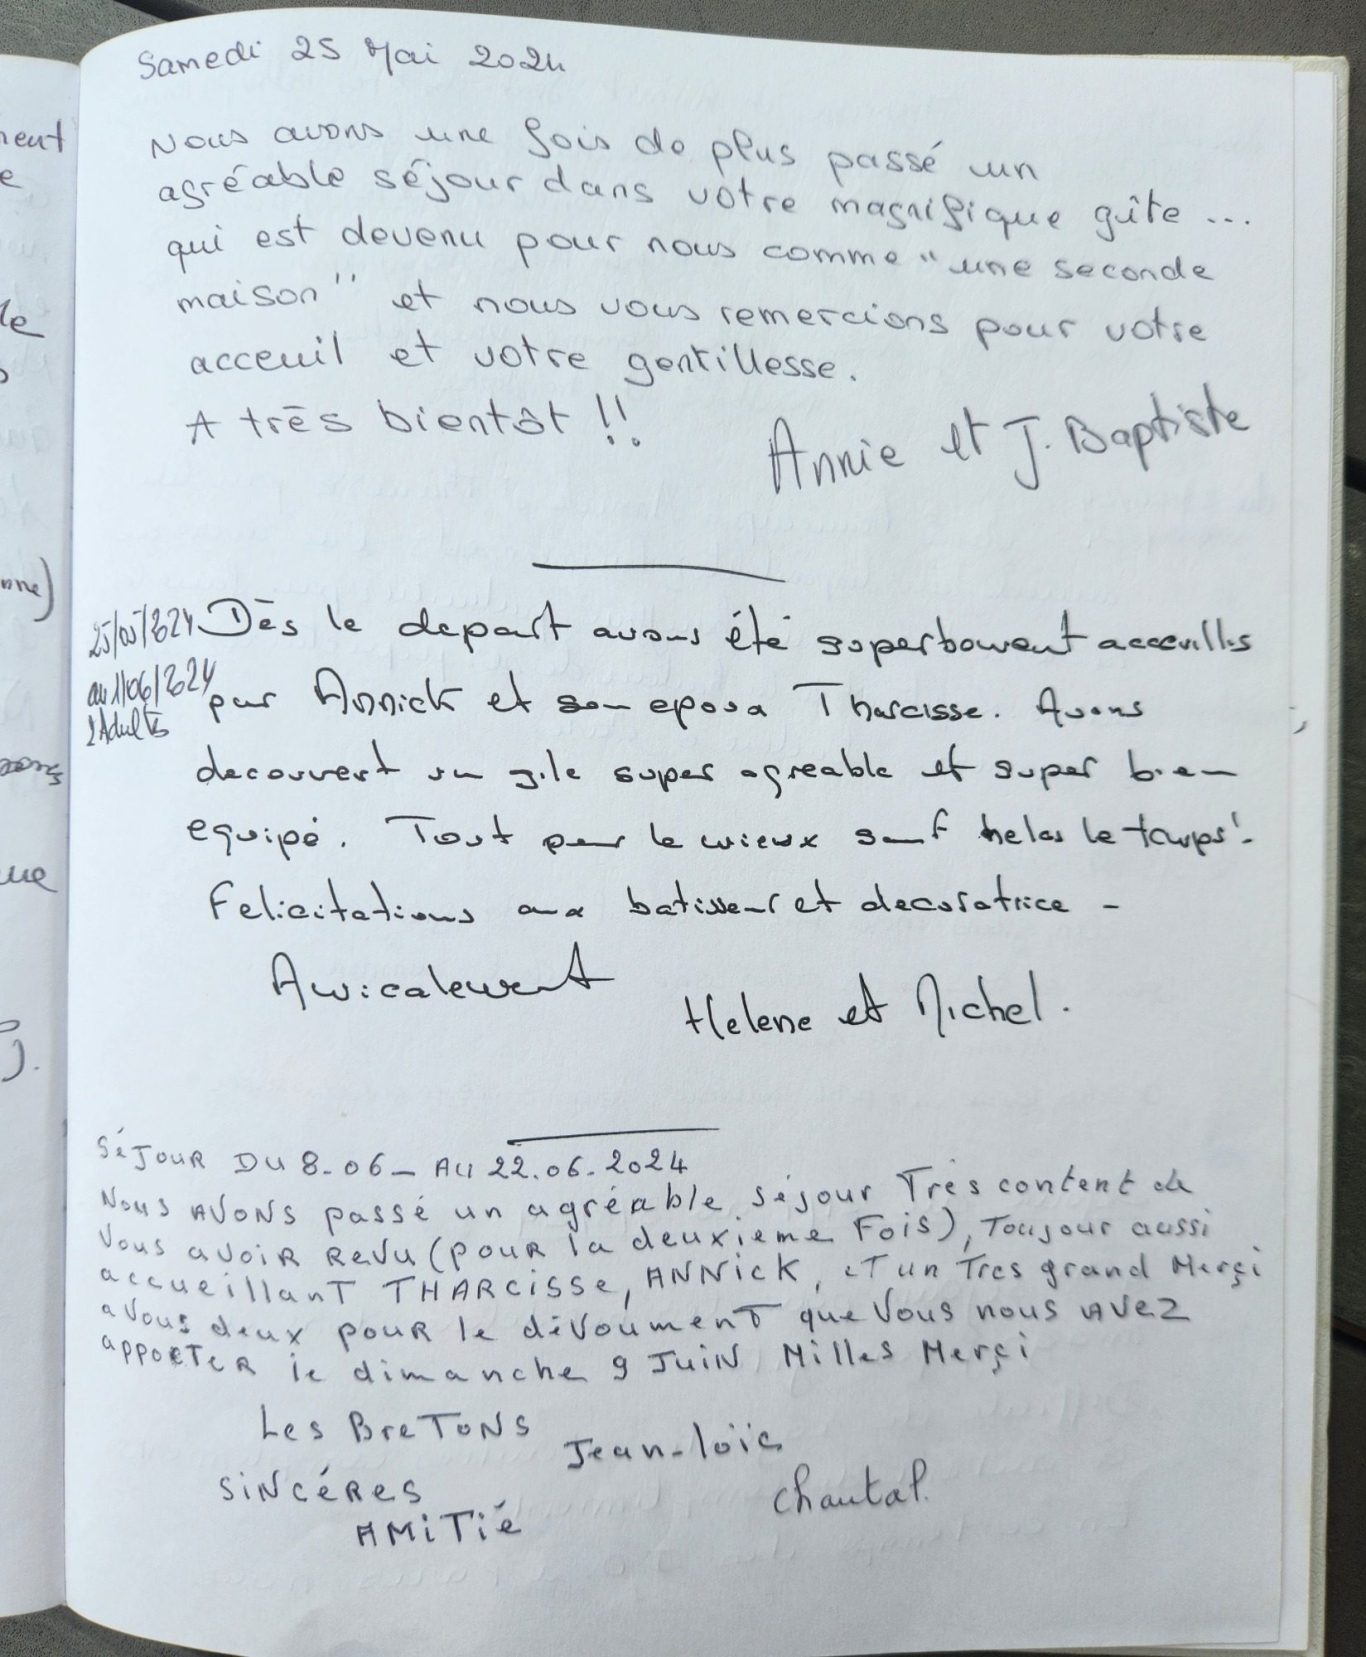 Samedi 25 Mai 2024
Nous avons une fois de plus passé un
agréable séjour dans votre magnifique gîte ...
qui est devenu pour nous comme "une seconde
maison" et nous vous remercions pour votre
acceuil et votre gentillesse.
A très bientôt !!
Annie et J. Baptiste
25/05/2024
au 1/06/2024
2 Adultes
Dès le depart avons été superbement acceuillis
par Annick et son epoux Tharcisse. Avons
decouvert un gite super agreable et super bien
equipé. Tout pour le mieux sauf helas le temps!
Felicitations aux batisseur et decoratrice -
Amicalement
Helene et Michel.
SéJOUR DU 8-06 - AU 22.06.2024
Nous AVONS passé un agréable séjour Très content de
Vous avoir Revu (pour la deuxieme Fois), Toujour aussi
accueillant THARCisse, ANNicK, eT un Tres grand Merçi
a Vous deux pour le dévoument que Vous nous AVez
appoRTeR le dimanche 9 JuiN Milles Merçi
Les BreToNs
Jean-loïc
SiNcéRes
chantal.
AMiTié